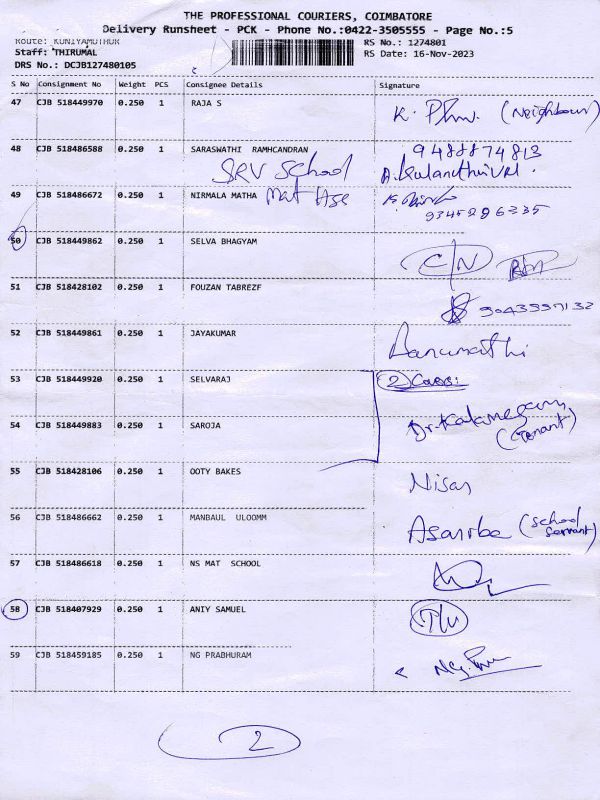 THE PROFESSIONAL COURIERS, COIMBATORE
Delivery Runsheet - PCK - Phone No.:0422-3505555 - Page No.:5
Route: KUNIYAMUTHUR RS No.: 1274801
Staff: THIRUMAL RS Date: 16-Nov-2023
DRS No.: DCJB127480105
S No Consignment No Weight PCS Consignee Details Signature
47 CJB 518449970 0.250 1 RAJA S K. (Neighbour)
48 CJB 518486588 0.250 1 SARASWATHI RAMHCANDRAN 9488874813
SRV School
49 CJB 518486672 0.250 1 NIRMALA MATHA Mat
50 CJB 518449862 0.250 1 SELVA BHAGYAM C/N
51 CJB 518428102 0.250 1 FOUZAN TABREZF
52 CJB 518449861 0.250 1 JAYAKUMAR
53 CJB 518449920 0.250 1 SELVARAJ 2
54 CJB 518449883 0.250 1 SAROJA (Tenant)
55 CJB 518428106 0.250 1 OOTY BAKES Nisar
56 CJB 518486662 0.250 1 MANBAUL ULOOMM (School Servant)
57 CJB 518486618 0.250 1 NS MAT SCHOOL
58 CJB 518407929 0.250 1 ANIY SAMUEL
59 CJB 518459185 0.250 1 NG PRABHURAM
2